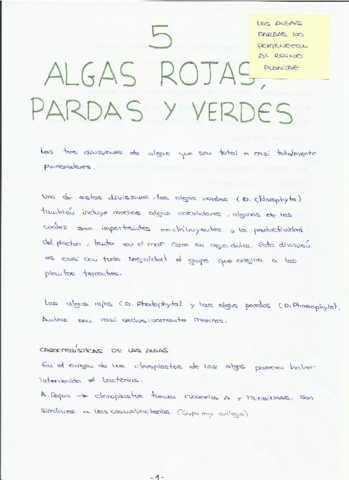 5
ALGAS ROJAS,
PARDAS Y VERDES
LAS ALGAS
PARDAS NO
PERTENECEN
AL REINO
PLANTAE
Las tres divisiones de algas que son total o casi totalmente
pluricelulares.
Una de estas divisiones, las algas verdes (D. Chlorophyta)
también incluye muchas algas unicelulares, algunas de las
cuales son importantes contribuyentes a la productividad
del plancton, tanto en el mar como en agua dulce. Esta división
es casi con toda seguridad el grupo que originó a las
plantas terrestres.
Las algas rojas (D. Rhodophyta) y las algas pardas (D. Phaeophyta).
Ambas son casi exclusivamente marinas.
CARACTERÍSTICAS DE LAS ALGAS
En el origen de los cloroplastos de las algas parecen haber
intervenido ≠ bacterias.
A. Rojas → cloroplastos tienen clorofila A y ficobilinas. son
similares a las cianobacterias. (Grupo muy antiguo)
-1-